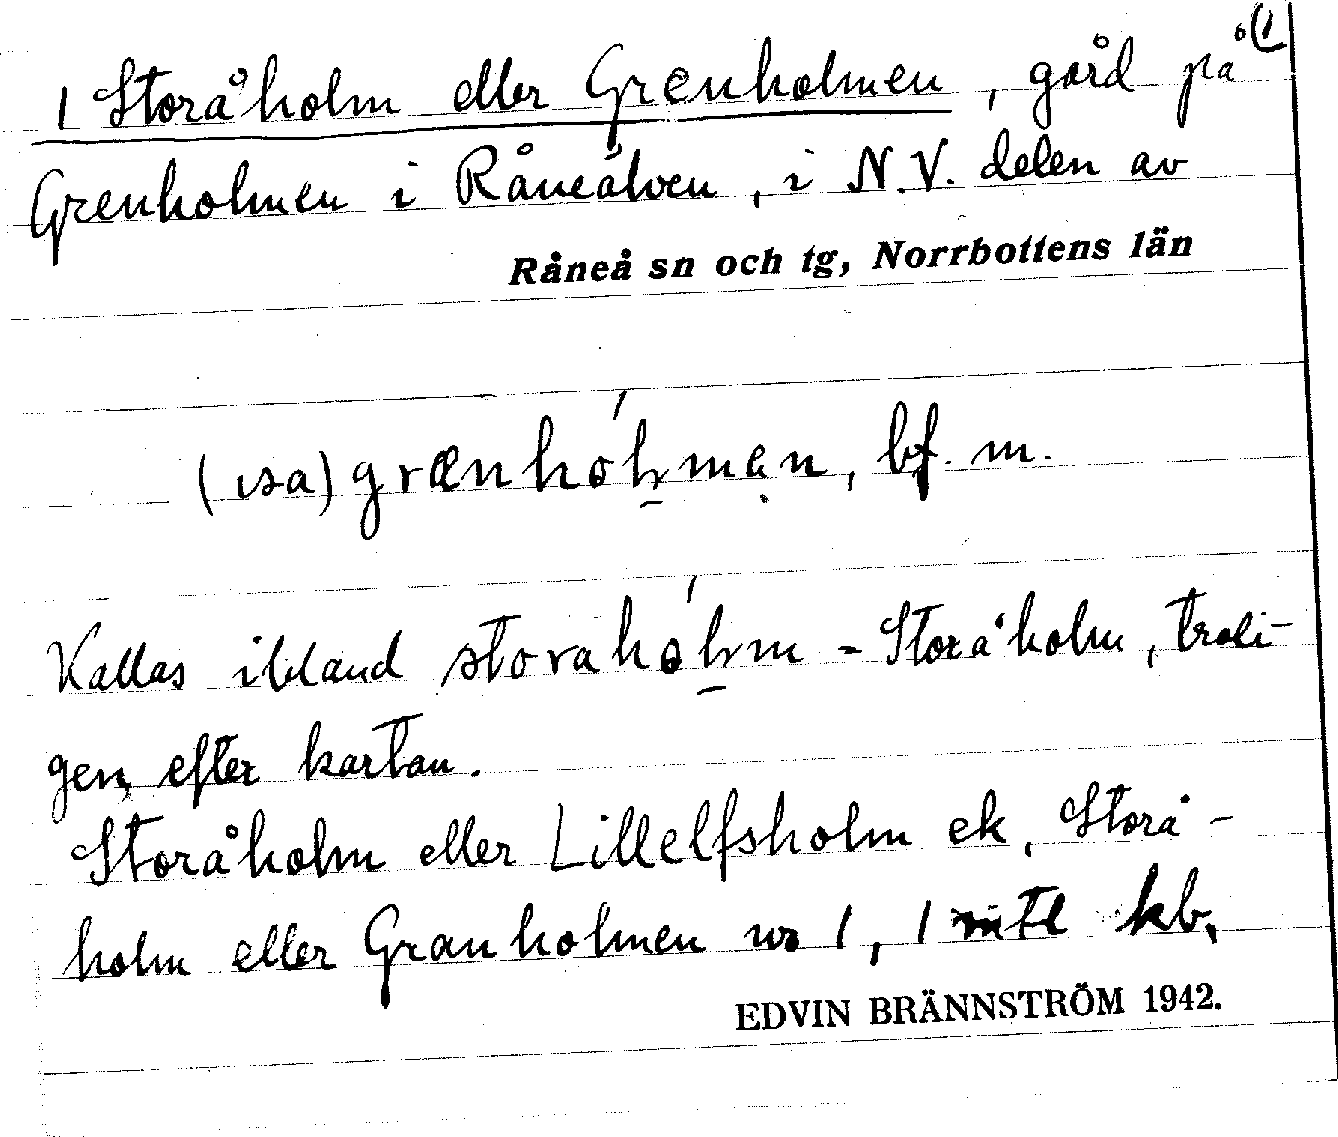 1 Storåholm eller Grenholmen, gård på (1
Grenholmen i Råneälven, i N.V. delen av
Råneå sn och tg, Norrbottens län
(isa) grænhólmen, bf. m.
Kallas ibland storahólm - Storåholm, troli-
gen efter kartan.
Storåholm eller Lillelfsholm ek, Storå-
holm eller Granholmen nr 1, 1 mtl kb.
EDVIN BRÄNNSTRÖM 1942.